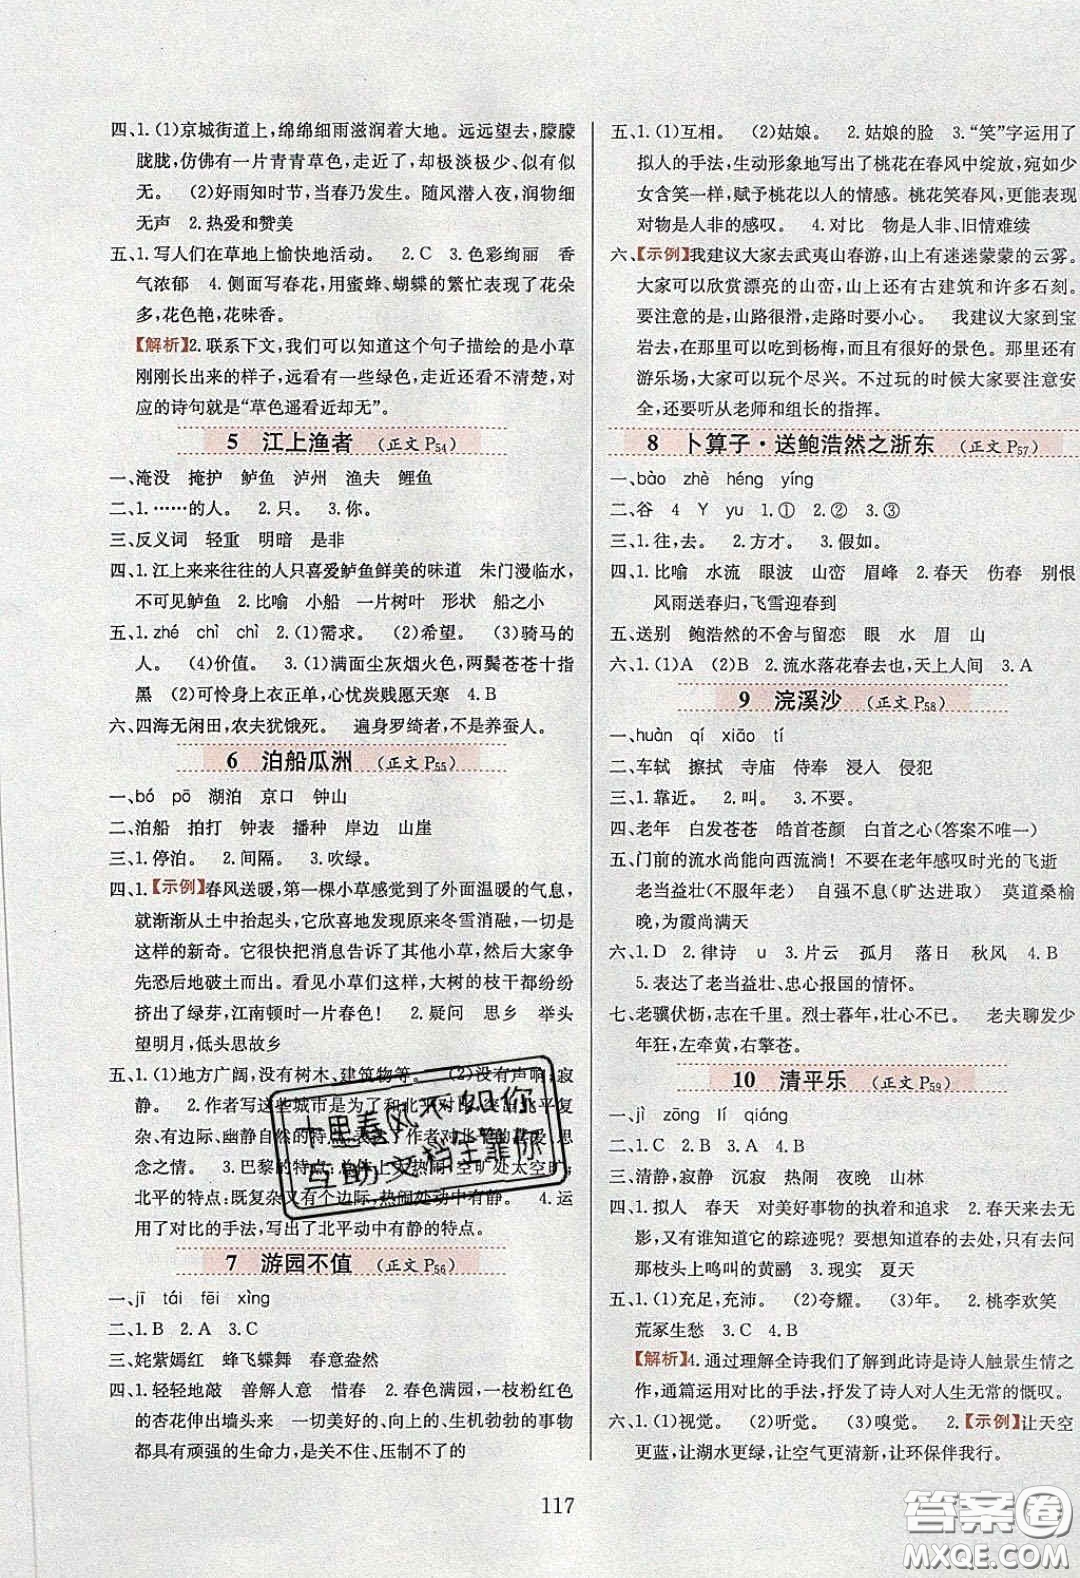 四、1.(1)京城街道上,绵绵细雨滋润着大地。远远望去,朦朦
胧胧,仿佛有一片青青草色,走近时,却极淡极少、似有似
无。 (2)好雨知时节,当春乃发生。随风潜入夜,润物细
无声 2.热爱和赞美
五、1.写人们在草地上愉快地活动。 2.C 3.色彩绚丽 香
气浓郁 4.侧面写春花,用蜜蜂、蝴蝶的繁忙表现了花朵
多,花色艳,花味香。
【解析】2.联系下文,我们可以知道这个句子描绘的是小草
刚刚长出来的样子,远看有一些绿色,走近还看不清楚,对
应的诗句就是“草色遥看近却无”。
5 江上渔者 (正文 P54)
一、淹没 掩护 鲈鱼 泸州 渔夫 鲤鱼
二、1.……的人。 2.只。 3.你。
三、反义词 轻重 明暗 是非
四、1.江上来来往往的人只喜爱鲈鱼鲜美的味道 朱门漫临水,
不可见鲈鱼 2.比喻 小船 一片树叶 形状 船之小
五、1.zhé chì chì 2.(1)需求。 (2)希望。 (3)骑马的
人。 (4)价值。 3.(1)满面尘灰烟火色,两鬓苍苍十指
黑 (2)可怜身上衣正单,心忧炭贱愿天寒 4.B
六、四海无闲田,农夫犹饿死。 遍身罗绮者,不是养蚕人。
6 泊船瓜洲 (正文 P55)
一、bó pō 湖泊 京口 钟山
二、泊船 拍打 钟表 播种 岸边 山崖
三、1.停泊。 2.间隔。 3.吹绿。
四、1.【示例】春风送暖,第一棵小草感觉到了外面温暖的气息,
就渐渐从土中抬起头,它欣喜地发现原来冬雪消融,一切是
这样的新奇。它很快把消息告诉了其他小草,然后大家争
先恐后地破土而出。看见小草们这样,大树的枝干都纷纷
挤出了绿芽,江南顿时一片春色! 2.疑问 思乡 举头
望明月,低头思故乡
五、1.(1)地方广阔,没有树木、建筑物等。 (2)没有声响;寂
静。 2.作者写这些城市是为了和北平对比,突出北平复
杂、有边际、幽静的特点,表达了作者对北平的喜爱、思
念之情。 3.巴黎的特点:总体上太热闹,空旷处太空旷;
北平的特点:既复杂又有个边际,热闹处动中有静。 4.运
用了对比的手法,写出了北平动中有静的特点。
7 游园不值 (正文 P56)
一、jī tái fēi xìng
二、1.B 2.A 3.C
三、姹紫嫣红 蜂飞蝶舞 春意盎然
四、1.轻轻地敲 善解人意 惜春 2.春色满园,一枝粉红色
的杏花伸出墙头来 一切美好的、向上的、生机勃勃的事物
都具有顽强的生命力,是关不住、压制不了的
五、1.(1)互相。 (2)姑娘。 2.姑娘的脸 3.“笑”字运用了
拟人的手法,生动形象地写出了桃花在春风中绽放,宛如少
女含笑一样,赋予桃花以人的情感。桃花笑春风,更能表现
对物是人非的感叹。 4.对比 物是人非、旧情难续
六、【示例】我建议大家去武夷山春游,山上有迷迷蒙蒙的云雾。
大家可以欣赏漂亮的山峦,山上还有古建筑和许多石刻。
要注意的是,山路很滑,走路时要小心。 我建议大家到宝
岩去,在那里可以吃杨梅,而且有很多的景色。那里还有
游乐场,大家可以玩个尽兴。不过玩的时候大家要注意安
全,还要听从老师和组长的指挥。
8 卜算子·送鲍浩然之浙东 (正文 P57)
一、bào zhè héng yíng
二、谷 4 Y yu 1.① 2.② 3.③
三、1.往,去。 2.方才。 3.假如。
四、1.比喻 水流 眼波 山峦 眉峰 2.春天 伤春 别恨
风雨送春归,飞雪迎春到
五、送别 鲍浩然的不舍与留恋 眼 水 眉 山
六、1.(1)A (2)B 2.流水落花春去也,天上人间 3.A
9 浣溪沙 (正文 P58)
一、huàn qí xiāo tí
二、车轼 擦拭 寺庙 侍奉 浸入 侵犯
三、1.靠近。 2.叫。 3.不要。
四、老年 白发苍苍 皓首苍颜 白首之心(答案不唯一)
五、门前的流水尚能向西流淌! 不要在老年感叹时光的飞逝
老当益壮(不服年老) 自强不息(旷达进取) 莫道桑榆
晚,为霞尚满天
六、1.D 2.律诗 u 3.片云 孤月 落日 秋风 4.B
5.表达了老当益壮、忠心报国的情怀。
七、老骥伏枥,志在千里。烈士暮年,壮心不已。 老夫聊发少
年狂,左牵黄,右擎苍。
10 清平乐 (正文 P59)
一、jì zōng lí qiáng
二、1.C 2.A 3.C 4.B
三、清静,寂静 沉寂 热闹 夜晚 山林
四、1.拟人 春天 对美好事物的执着和追求 2.春天来去无
影,又有谁知道它的踪迹呢?要想知道春的去处,只有问
那枝头上鸣叫的黄鹂 3.现实 夏天
五、1.(1)充足,充沛。 (2)夸耀。 (3)年。 2.桃李欢笑
荒冢生愁 3.C 4.B
【解析】4.通过理解全诗我们了解到此诗是诗人触景生情之
作,通篇运用对比的手法,抒发了诗人对人生无常的慨叹。
六、1.(1)视觉。 (2)听觉。 (3)嗅觉。 2.【示例】让天空
更蓝,让湖水更绿,让空气更清新,让环保伴我行。
117
十里春风不如你
互助文档生靠你
答案圈
MXQE.COM